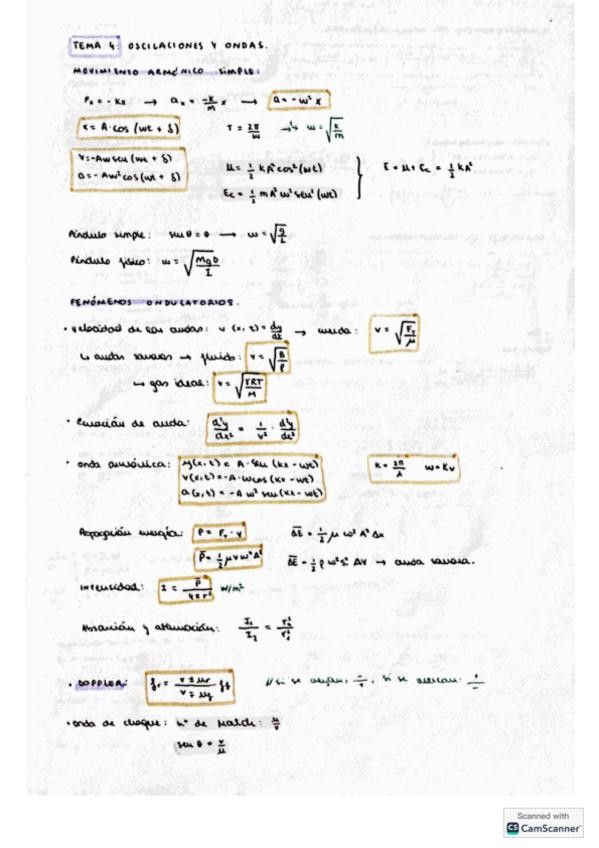 TEMA 4: OSCILACIONES Y ONDAS.
MOVIMIENTO ARMÓNICO SIMPLE:
Fx = - Kx → ax = -k/m x → a = - w² x
x = A · cos (wt + δ)
T = 2π/w → w = √(k/m)
v = -Aw sen (wt + δ)
a = - Aw² cos (wt + δ)
μ = 1/2 KA² cos² (wt)
Ec = 1/2 mA² w² sen² (wt)
E = μ + Ec = 1/2 KA²
Péndulo simple: sen θ ≈ θ → w = √(g/L)
Péndulo físico: w = √(MgD/I)
FENÓMENOS ONDULATORIOS.
• Velocidad de las ondas: v (x, t) = dy/dt → cuerda: v = √(FT/μ)
↳ ondas sonoras → fluido: v = √(B/ρ)
↳ gas ideal: v = √(γRT/M)
• Ecuación de onda: d²y/dx² = 1/v² · d²y/dt²
• onda armónica: y(x, t) = A · sen (kx - wt)
v(x, t) = - A · w cos (kx - wt)
a(x, t) = - A w² sen (kx - wt)
K = 2π/λ w = Kv
Propagación energía: P = FT · v
ΔE = 1/2 μ w² A² Δx
P = 1/2 μ v w² A²
ΔE = 1/2 ρ w² s² ΔV → onda sonora.
Intensidad: I = P/4πr² W/m²
Absorción y atenuación: I1/I2 = r2²/r1²
• DOPPLER: fr = v ± μr / v ∓ μf ff
// si se alejan, -/+, si se acercan: +/-
• onda de choque: nº de Match: μ/v
sen θ = v/μ
Scanned with
CS CamScanner